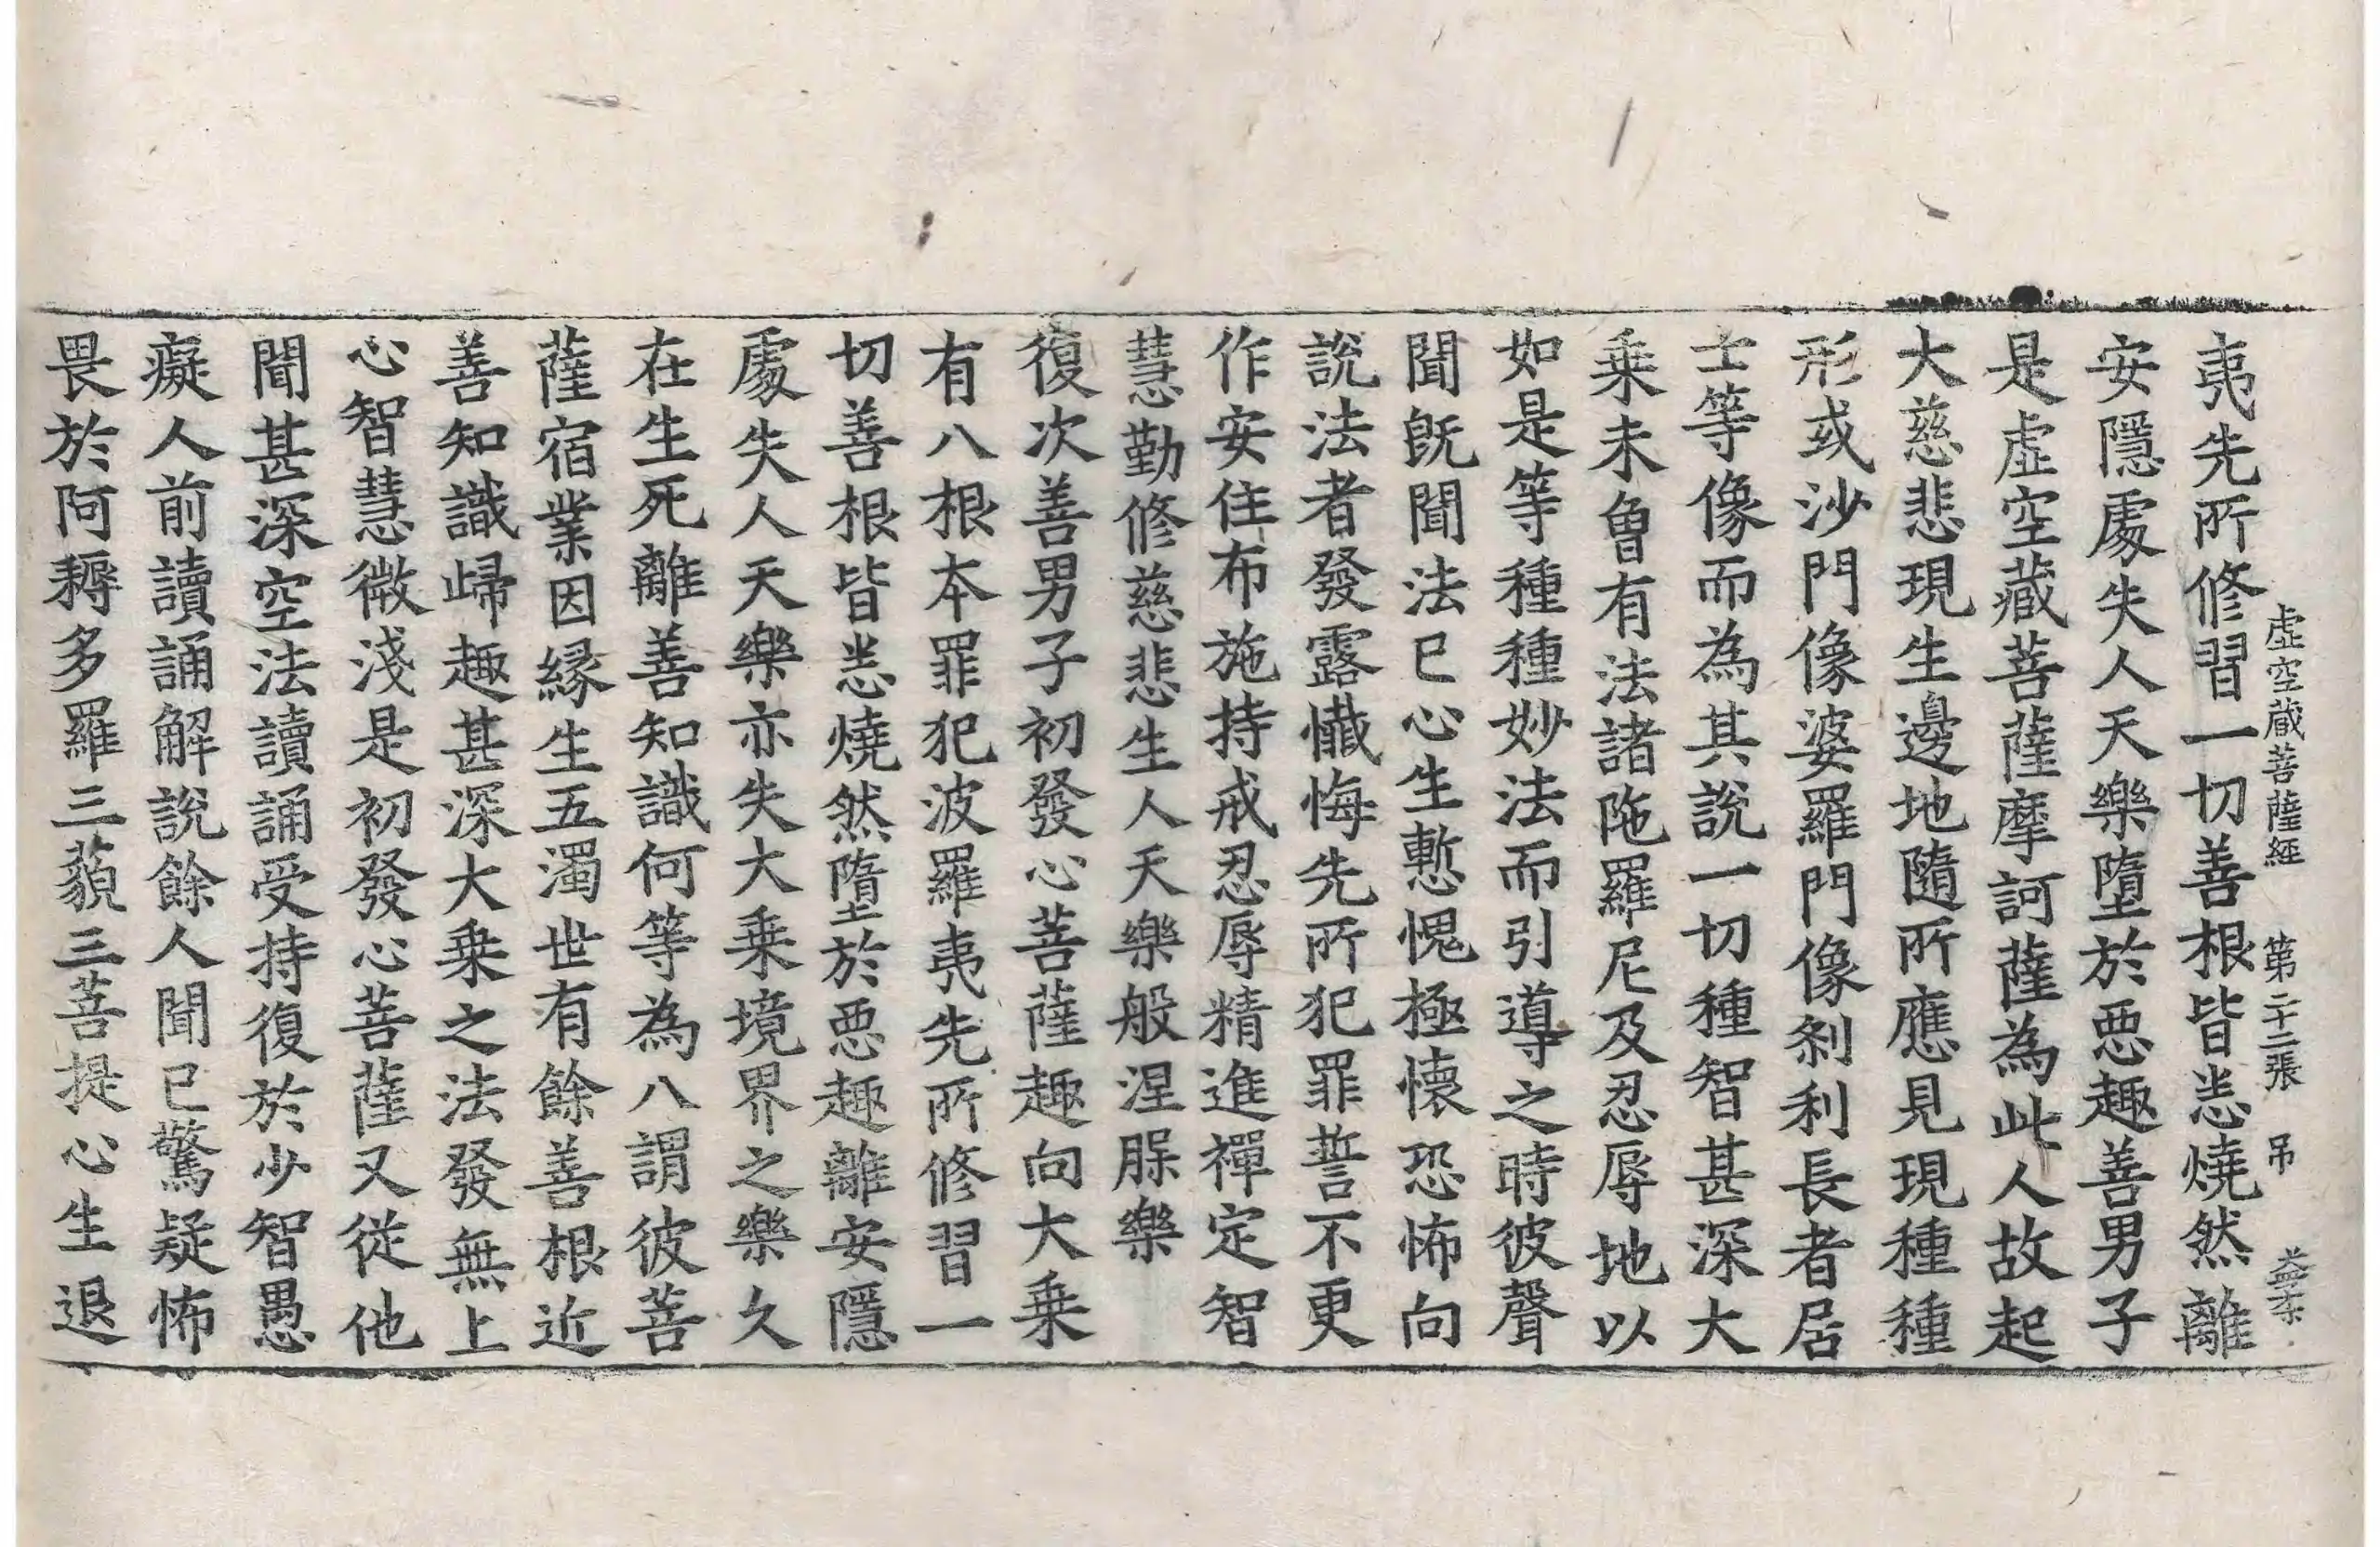 虛空藏菩薩經 第二十二張 吊
夷先所修習一切善根皆悉燒然離
安隱處失人天樂墮於惡趣善男子
是虛空藏菩薩摩訶薩為此人故起
大慈悲現生邊地隨所應見現種種
形或沙門像婆羅門像剎利長者居
士等像而為其說一切種智甚深大
乗未曾有法諸陁羅尼及忍辱地以
如是等種種妙法而引導之時彼聲
聞旣聞法已心生慙愧極懷恐怖向
說法者發露懴悔先所犯罪誓不更
作安住布施持戒忍辱精進禪定智
慧勤修慈悲生人天樂般涅槃樂
復次善男子初發心菩薩趣向大乗
有八根本罪犯波羅夷先所修習一
切善根皆悉燒然墮於惡趣離安隱
處失人天樂亦失大乗境界之樂久
在生死離善知識何等為八謂彼菩
薩宿業因緣生五濁世有餘善根近
善知識歸趣甚深大乗之法發無上
心智慧微淺是初發心菩薩又從他
聞甚深空法讀誦受持復於少智愚
癡人前讀誦解說餘人聞已驚疑怖
畏於阿耨多羅三藐三菩提心生退